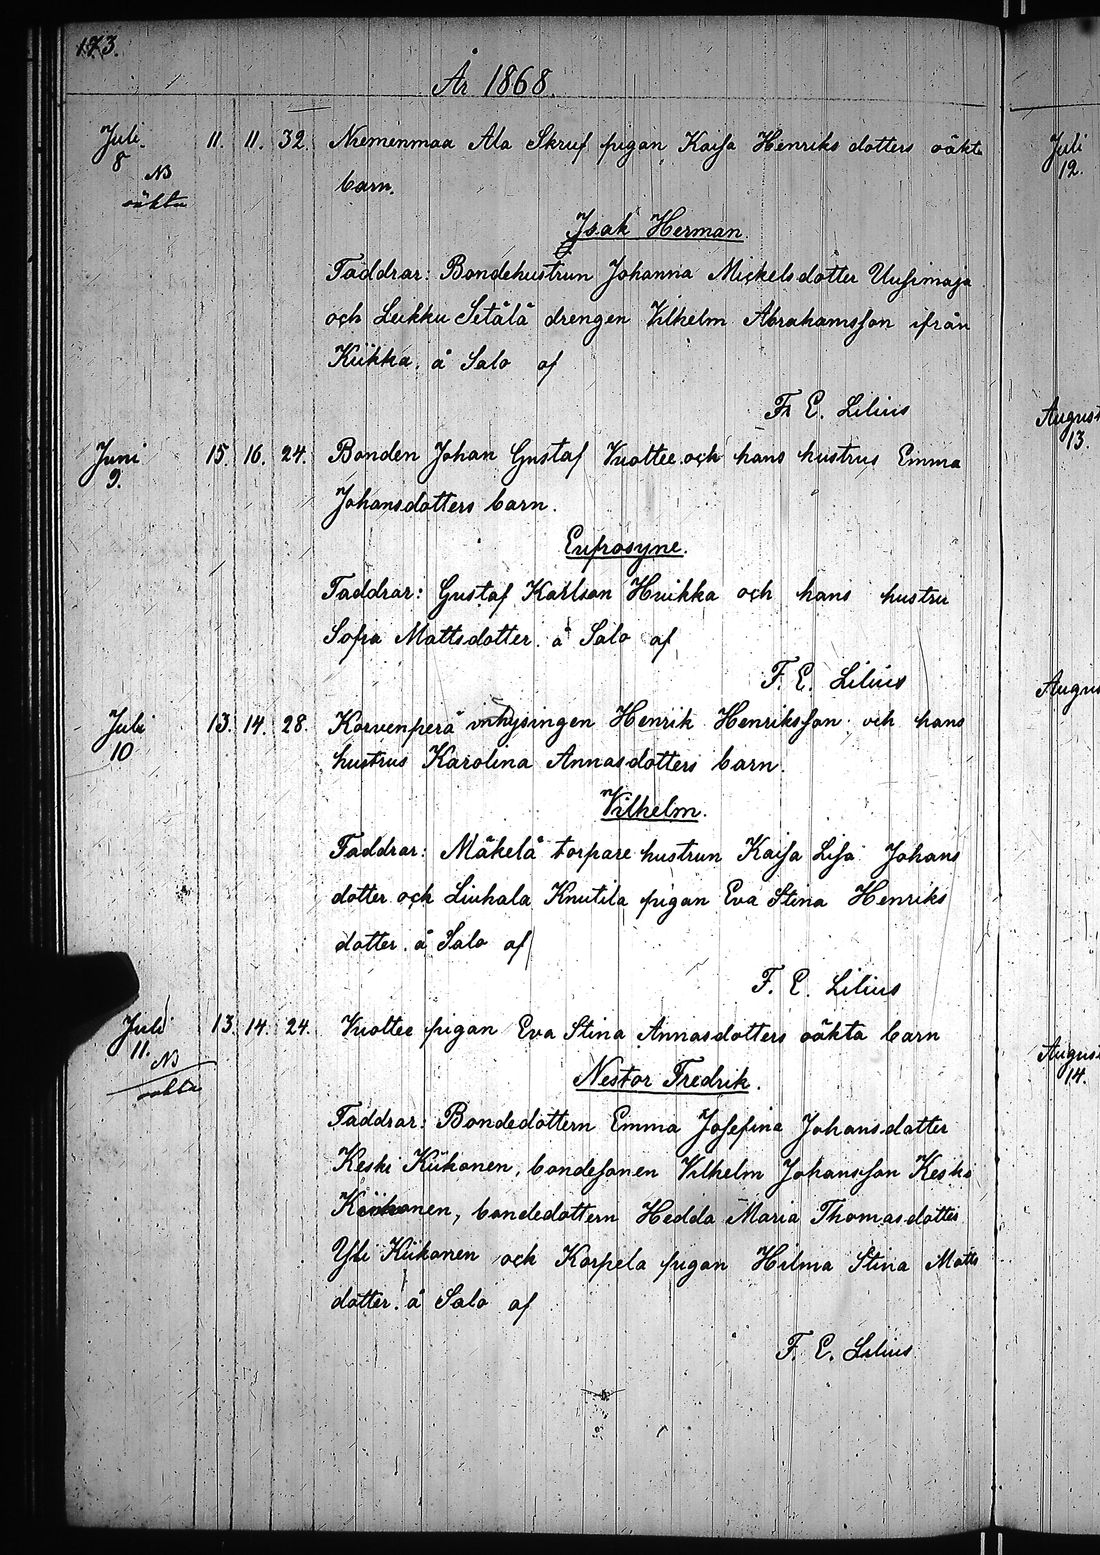 173.
År 1868.
Juli 11. 11. 32. Niemenmaa Ala Skruf pigan Kaisa Henriks dotters oäkta
8
NB barn.
oäkta
Isak Herman.
Faddrar: Bondehustrun Johanna Mickelsdotter Uusimaja
och Leikku Setälä drengen Vilhelm Abrahamsson ifrån
Kiikka. å Salo af
Fr E. Lilius
Juni 15. 16. 24. Bonden Johan Gustaf Vuottee och hans hustrus Emma
9.
Johansdotters barn.
Eufrosyne.
Faddrar: Gustaf Karlson Huikka och hans hustru
Sofia Mattsdotter. å Salo af
F. E. Lilius
Juli 13. 14. 28. Korvenperä inhysingen Henrik Henriksson och hans
10
hustrus Karolina Annasdotters barn.
Vilhelm.
Faddrar: Mäkelä torpare hustrun Kaisa Lisa Johans
dotter och Liuhala Knutila pigan Eva Stina Henriks
dotter. å Salo af
F. E. Lilius
Juli 13. 14. 24. Vuottee pigan Eva Stina Annasdotters oäkta barn
11.
NB
oäkta
Nestor Fredrik.
Faddrar: Bondedottern Emma Josefina Johansdotter
Keski Kiikonen, bondesonen Vilhelm Johansson Keski
Kiikonen, bondedottern Hedda Maria Thomasdotter
Yli Kiikonen och Korpela pigan Hilma Stina Matts
dotter. å Salo af
F. E. Lilius
Juli
12.
August
13.
Augus
August
14.